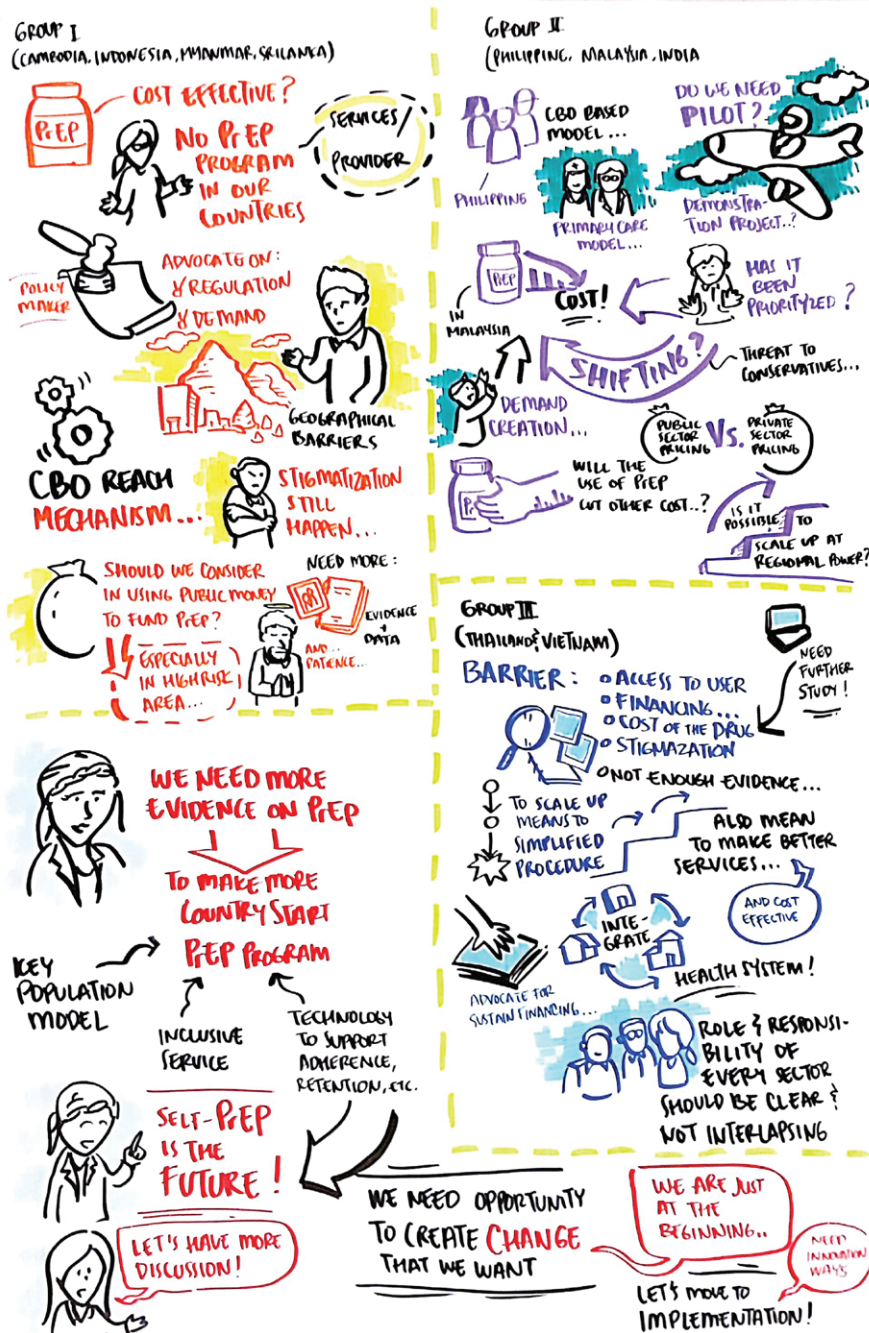 GROUP I
(CAMBODIA, INDONESIA, MYANMAR, SRILANKA)
PrEP
COST EFFECTIVE?
NO PrEP
PROGRAM
IN OUR
COUNTRIES
SERVICES/
PROVIDER
POLICY
MAKER
ADVOCATE ON:
REGULATION
DEMAND
GEOGRAPHICAL
BARRIERS
CBO REACH
MECHANISM...
STIGMATIZATION
STILL
HAPPEN...
SHOULD WE CONSIDER
IN USING PUBLIC MONEY
TO FUND PrEP?
ESPECIALLY
IN HIGH RISK
AREA...
NEED MORE:
EVIDENCE
+
DATA
AND...
PATIENCE...
GROUP II
(PHILIPPINE, MALAYSIA, INDIA
CBO BASED
MODEL...
PHILIPPINE
PRIMARY CARE
MODEL...
DO WE NEED
PILOT?
DEMONSTRA-
TION PROJECT..?
PrEP
IN
MALAYSIA
COST!
HAS IT
BEEN
PRIORITYZED?
SHIFTING?
THREAT TO
CONSERVATIVES...
DEMAND
CREATION...
PUBLIC
SECTOR
PRICING
Vs.
PRIVATE
SECTOR
PRICING
Pr
WILL THE
USE OF PrEP
CUT OTHER COST..?
IS IT
POSSIBLE TO
SCALE UP AT
REGIONAL POWER?
GROUP III
(THAILAND & VIETNAM)
BARRIER:
ACCESS TO USER
FINANCING...
COST OF THE DRUG
STIGMAZATION
NOT ENOUGH EVIDENCE...
NEED
FURTHER
STUDY!
TO SCALE UP
MEANS TO
SIMPLIFIED
PROCEDURE
ALSO MEAN
TO MAKE BETTER
SERVICES...
AND COST
EFFECTIVE
INTE-
GRATE
HEALTH SYSTEM!
ADVOCATE FOR
SUSTAIN FINANCING...
ROLE & RESPONSI-
BILITY OF
EVERY SECTOR
SHOULD BE CLEAR &
NOT INTERLAPSING
WE NEED MORE
EVIDENCE ON PrEP
TO MAKE MORE
COUNTRY START
PrEP PROGRAM
KEY
POPULATION
MODEL
INCLUSIVE
SERVICE
TECHNOLOGY
TO SUPPORT
ADHERENCE,
RETENTION, ETC.
SELF-PrEP
IS THE
FUTURE!
LET'S HAVE MORE
DISCUSSION!
WE NEED OPPORTUNITY
TO CREATE CHANGE
THAT WE WANT
WE ARE JUST
AT THE
BEGINNING..
NEED
INNOVATION
WAYS
LET'S MOVE TO
IMPLEMENTATION!